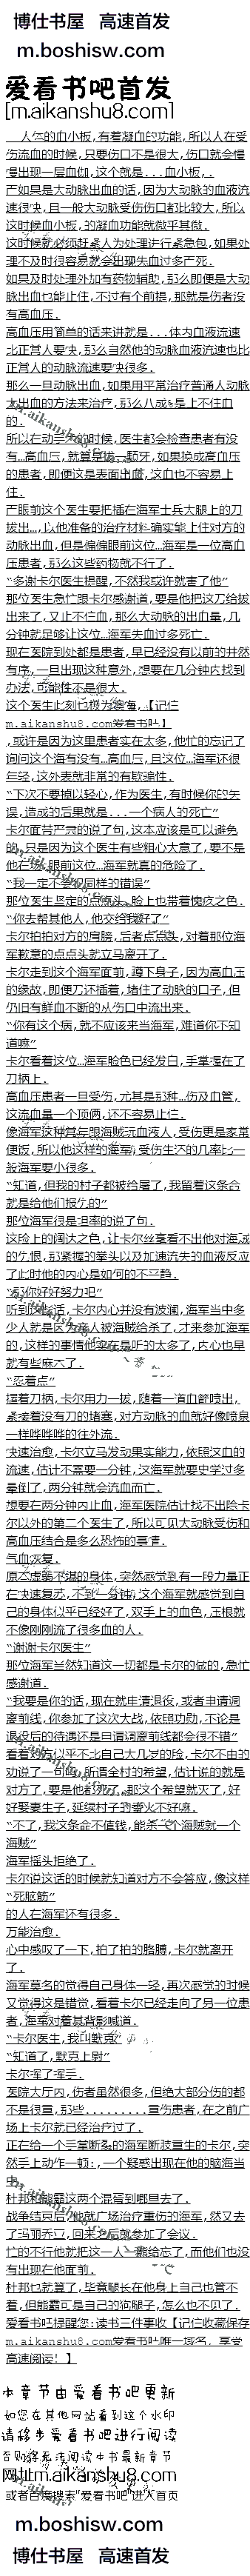 博仕书屋 高速首发
m.boshisw.com
爱看书吧首发
[m.aikanshu8.com]
人体的血小板,有着凝血的功能,所以人在受
伤流血的时候,只要伤口不是很大,伤口就会慢
慢出现一层血伽,这个就是...血小板,.
产如果是大动脉出血的话,因为大动脉的血液流
速很快,且一般大动脉受伤伤口都比较大,所以
这时候血小板,的凝血功能就微乎其微.
这时候就必须赶紧人为处理进行紧急包,如果处
理不及时很容易就会出现失血过多产死.
如果及时处理外加有药物辅助,那么即便是大动
脉出血也能止住,不过有个前提,那就是伤者没
有高血压.
高血压用简单的话来讲就是...体内血液流速
比正常人要快,那么当然他的动脉血液流速也比
正常人的动脉流速要快很多.
那么一旦动脉出血,如果用平常治疗普通人动脉
大出血的方法来治疗,那么八成是上不住血
的.
所以在动手术时候,医生都会检查患者有没
有…高血压,就算是拔一颗牙,如果换成高血压
的患者,即便这是表面出血,这血也不容易上
住.
产眼前这个医生要把插在海军士兵大腿上的刀
拔出…,以他准备的治疗材料确实能上住对方的
动脉出血,但是偏偏眼前这位…海军是一位高血
压患者,那么这些药物就不行了.
“多谢卡尔医生提醒,不然我或许就害了他”
那位医生急忙跟卡尔感谢道,要是他把这刀给拔
出来了,又止不住血,那么大动脉的出血量,几
分钟就足够让这位…海军失血过多死亡.
现在医院到处都是患者,早已经没有以前的井然
有序,一旦出现这种意外,想要在几分钟内找到
办法,可能性不是很大.
这个医生此刻也极为羞悔,【记住
m.aikanshu8.com爱看书吧】
,或许是因为这里患者实在太多,他忙的忘记了
询问这个海有没有…高血压,且这位…海军还很
年轻,这外表就非常的有欺骗性.
“下次不要掉以轻心,作为医生,有时候你的失
误,造成的后果就是...一个病人的死亡”
卡尔面带严肃的说了句,这本应该是可以避免
的,只是因为这个医生有些粗心大意了,要不是
他在场,眼前这位…海军就真的危险了.
“我一定不会犯同样的错误”
那位医生坚定的点点头,脸上也带着愧疚之色.
“你去帮其他人,他交给我好了”
卡尔拍拍对方的肩膀,后者点点头,对着那位海
军歉意的点点头就立马离开了.
卡尔走到这个海军面前,蹲下身子,因为高血压
的缘故,即便刀还插着,堵住了动脉的口子,但
仍旧有鲜血不断的从伤口中流出来.
“你有这个病,就不应该来当海军,难道你不知
道嘛”
卡尔看着这位…海军脸色已经发白,手掌握在了
刀柄上.
高血压患者一旦受伤,尤其是那种…伤及血管,
这流血量一个顶俩,还不容易止住.
像海军这种常年跟海贼玩血液人,受伤更是家常
便饭,所以他这样的海军,受伤生还的几率比一
般海军要小很多.
“知道,但我的村子都被给屠了,我留着这条命
就是给他们报仇的”
那位海军很是坦率的说了句.
这脸上的阔达之色,让卡尔丝毫看不出他对海贼
的仇恨,那紧握的拳头以及加速流失的血液反应
了此时他的内心是如何的不平静.
“那你好好努力吧”
听到这些话,卡尔内心并没有波澜,海军当中多
少人就是因为亲人被海贼给杀了,才来参加海军
的,这样的事情他实在是听的太多了,内心也早
就有些麻木了.
“忍着点”
握着刀柄,卡尔用力一拔,随着一道血箭喷出,
紧接着没有刀的堵塞,对方动脉的血就好像喷泉
一样哗哗哗的往外流.
快速治愈,卡尔立马发动果实能力,依照这血的
流速,估计不需要一分钟,这海军就要失学过多
晕倒了,两分钟就会流血而亡.
想要在两分钟内止血,海军医院估计找不出除卡
尔以外的第二个医生了,所以可见大动脉受伤和
高血压结合是多么恐怖的事情.
气血恢复.
原本虚弱不堪的身体,突然感觉到有一股力量正
在快速复苏,不到一分钟,这个海军就感觉到自
己的身体似乎已经好了,双手上的血色,压根就
不像刚刚流了很多血的人.
“谢谢卡尔医生”
那位海军当然知道这一切都是卡尔的做的,急忙
感谢道.
“我要是你的话,现在就申请退役,或者申请调
离前线,你参加了这次大战,依照功勋,不论是
退役后的待遇还是申请调离前线都会很不错”
看着对方似乎不比自己大几岁的脸,卡尔不由的
劝说了一句他,所谓全村的希望,估计说的就是
对方了,要是他都死了,那这个希望就灭了,好
好娶妻生子,延续村子的香火不好嘛.
“不了,我这条命不值钱,能杀一个海贼就一个
海贼”
海军摇头拒绝了.
卡尔说这话的时候就知道对方不会答应,像这样
“死脑筋”
的人在海军还有很多.
万能治愈.
心中感叹了一下,拍了拍的胳膊,卡尔就离开
了.
海军莫名的觉得自己身体一轻,再次感觉的时候
又觉得这是错觉,看着卡尔已经走向了另一位患
者,海军对着其背影喊道.
“卡尔医生,我叫默克”
“知道了,默克上尉”
卡尔挥了挥手.
医院大厅内,伤者虽然很多,但绝大部分伤的都
不是很重,那些.........重伤患者,在之前广
场上卡尔就已经治疗过了.
正在给一个手掌断裂的海军断肢重生的卡尔,突
然手上动作一顿:,一个疑惑出现在他的脑海当
中.
杜邦和熊霸这两个混蛋到哪里去了.
战争结束后,他就广场治疗重伤的海军,然又去
了玛丽乔亚,回来之后就参加了会议.
忙的不行他就把这一人一熊给忘了,而他们也没
有出现在他面前.
杜邦也就算了,毕竟腿长在他身上自己也管不
着,但熊霸可是自己的狗腿子,怎么也不见了.
爱看书吧提醒您:读书三件事收【记住收藏保存
m.aikanshu8.com爱看书吧唯一域名，享受
高速阅读！】
本章节由爱看书吧更新
如您在其他网站看到这个水印
请移步爱看书吧进行阅读
否则将无法阅读本书最新章节
网址m.aikanshu8.com
或者百度搜索“爱看书吧”进入首页
m.boshisw.com
博仕书屋 高速首发